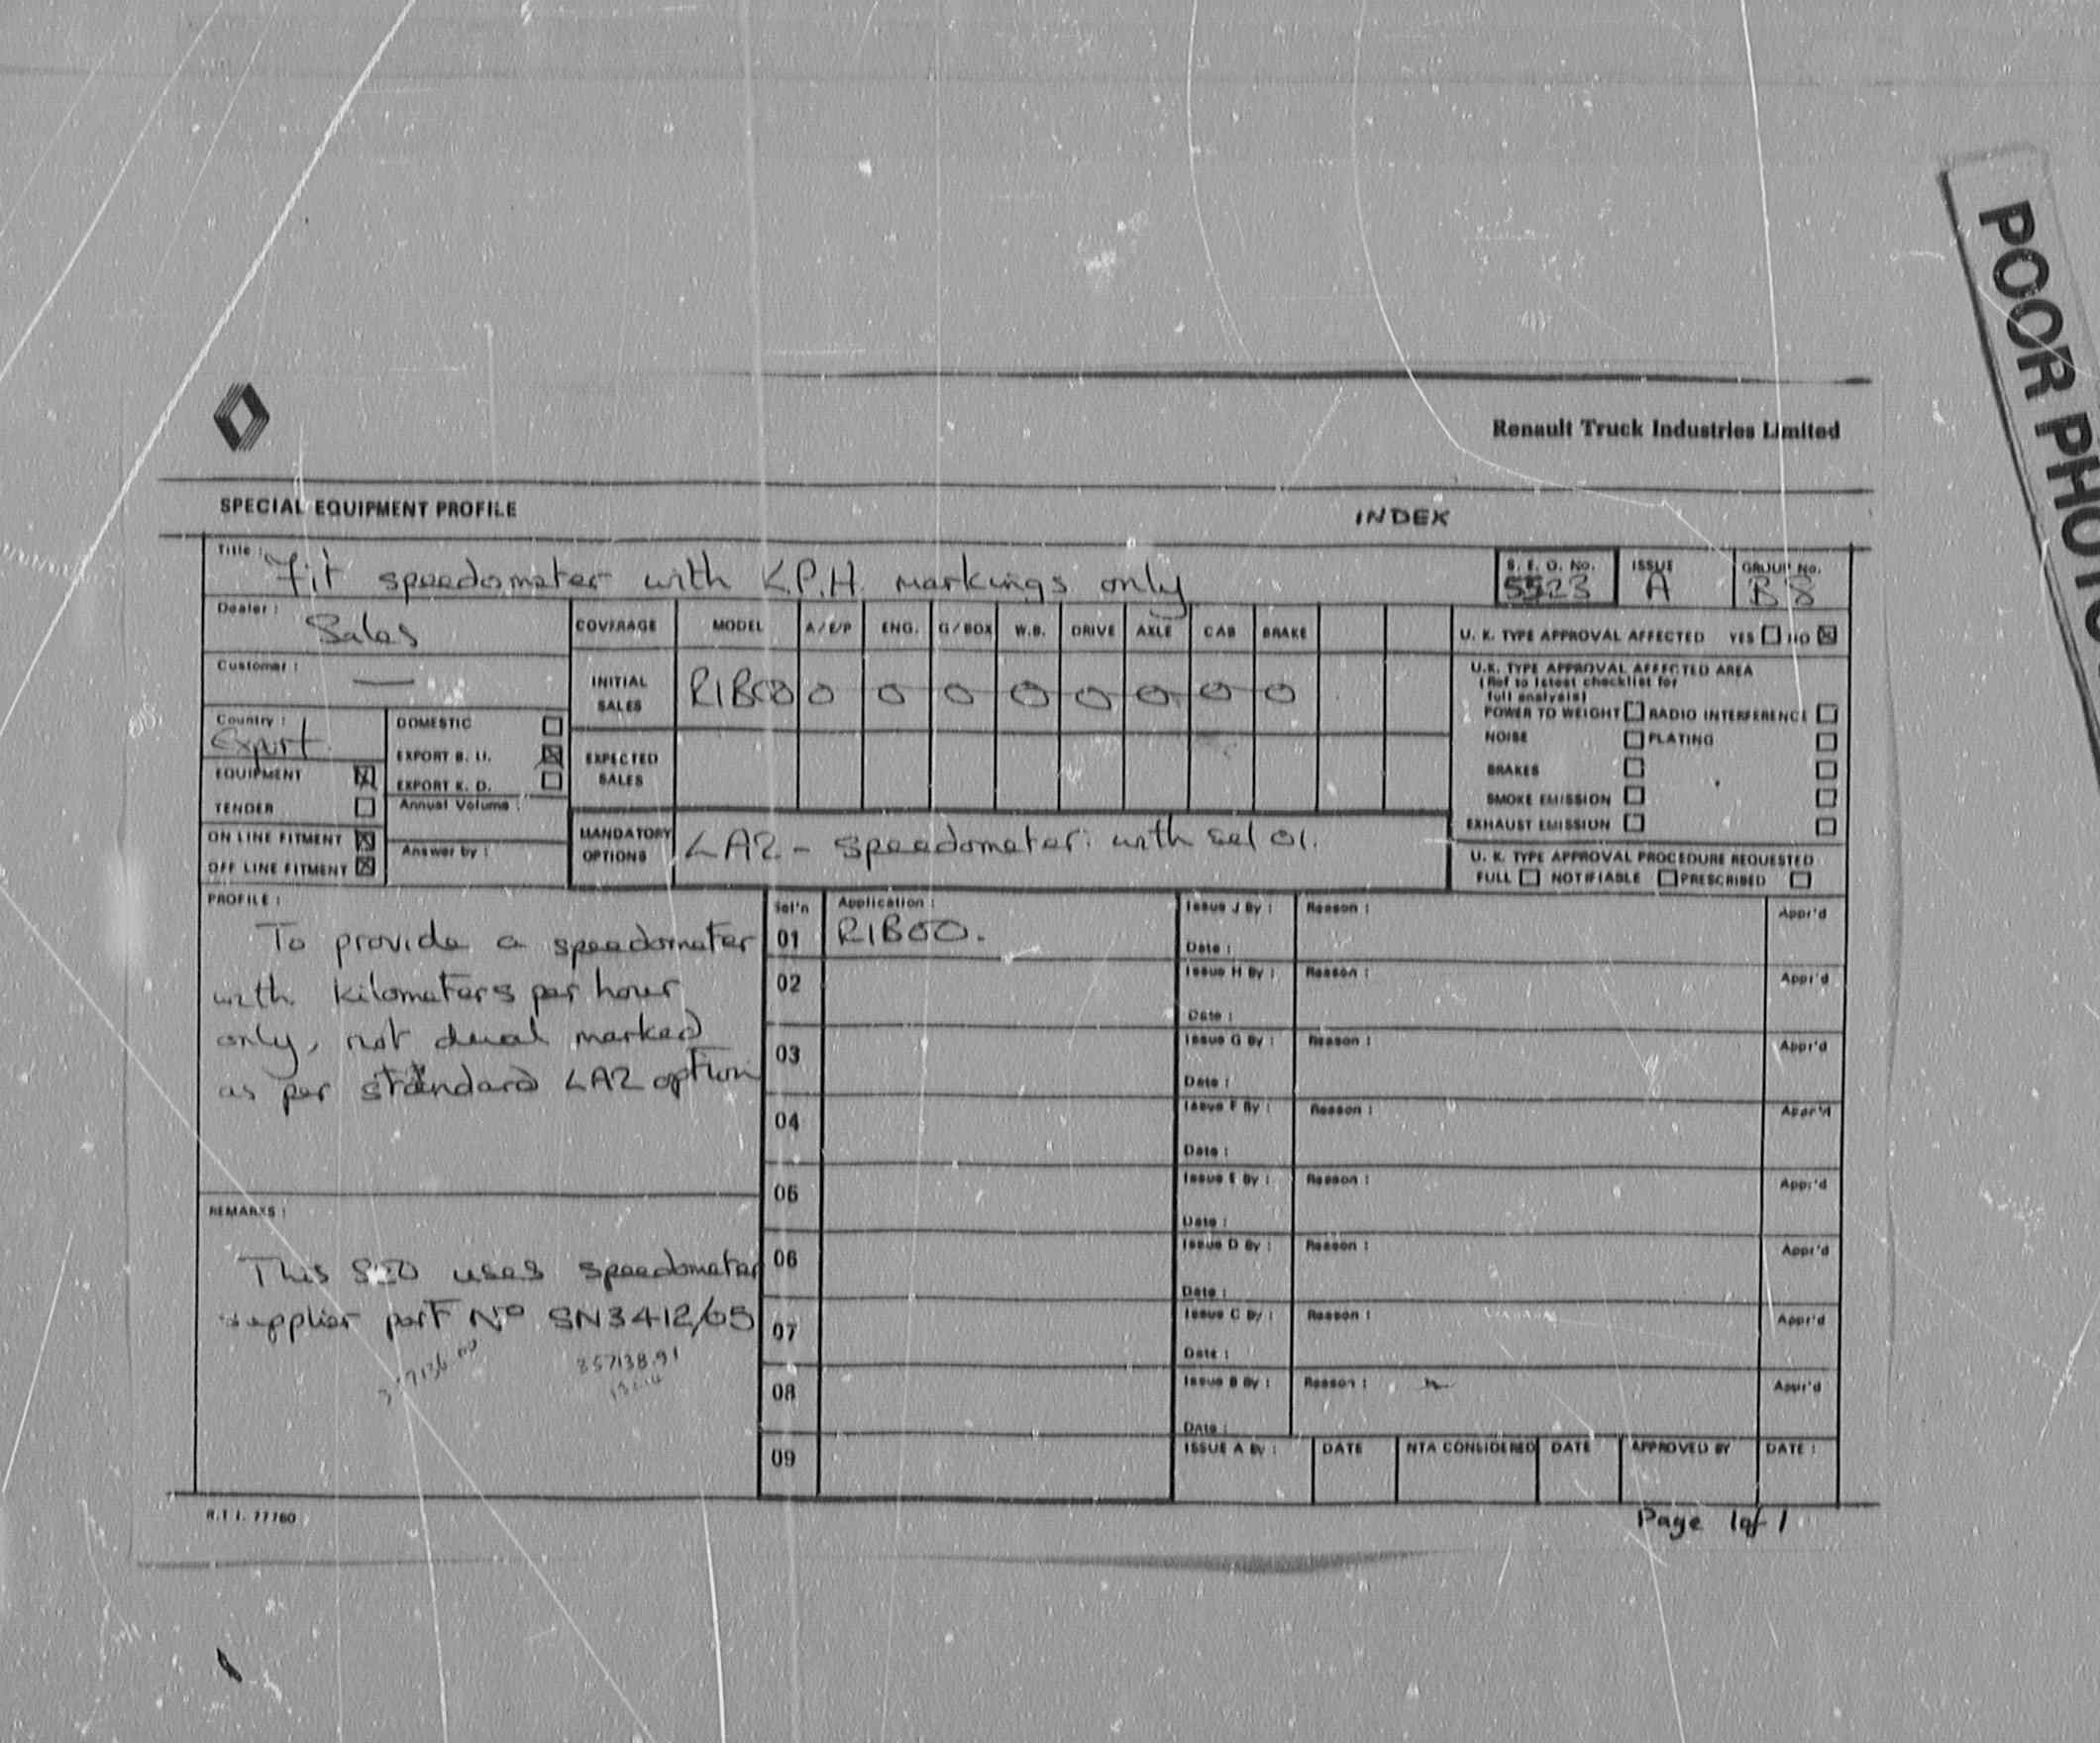 POOR PHOTO
Renault Truck Industries Limited
SPECIAL EQUIPMENT PROFILE
INDEX
Title :
Fit speedometer with K.P.H. markings only
S. E. O. No.
5523
ISSUE
A
GROUP No.
B8
Dealer :
Sales
Customer :
—
Country :
Export
EQUIPMENT
TENDER
ON LINE FITMENT
OFF LINE FITMENT
DOMESTIC
EXPORT B. U.
EXPORT K. D.
Annual Volume :
Answer by :
COVERAGE MODEL A/E/P ENG. G/BOX W.B. DRIVE AXLE CAB BRAKE
INITIAL
SALES
R1B00 0 0 0 0 0 0 0 0
EXPECTED
SALES
MANDATORY
OPTIONS
LA2 - speedometer. with sel 01.
U. K. TYPE APPROVAL AFFECTED YES NO
U.K. TYPE APPROVAL AFFECTED AREA
(Ref to latest checklist for
full analysis)
POWER TO WEIGHT RADIO INTERFERENCE
NOISE PLATING
BRAKES
SMOKE EMISSION
EXHAUST EMISSION
U. K. TYPE APPROVAL PROCEDURE REQUESTED
FULL NOTIFIABLE PRESCRIBED
PROFILE :
To provide a speedometer
with kilometers per hour
only, not dual marked
as per standard LA2 option
REMARKS :
This SEO uses speedometer
supplier part No SN3412/05
857138.91
Sel'n
Application :
01 R1B00.
02
03
04
05
06
07
08
09
Issue J By : Reason : Appr'd
Date :
Issue H By : Reason : Appr'd
Date :
Issue G By : Reason : Appr'd
Date :
Issue F By : Reason : Appr'd
Date :
Issue E By : Reason : Appr'd
Date :
Issue D By : Reason : Appr'd
Date :
Issue C By : Reason : Appr'd
Date :
Issue B By : Reason : Appr'd
Date :
ISSUE A By : DATE NTA CONSIDERED DATE APPROVED BY DATE :
R.T.I. 77760
Page 1 of 1